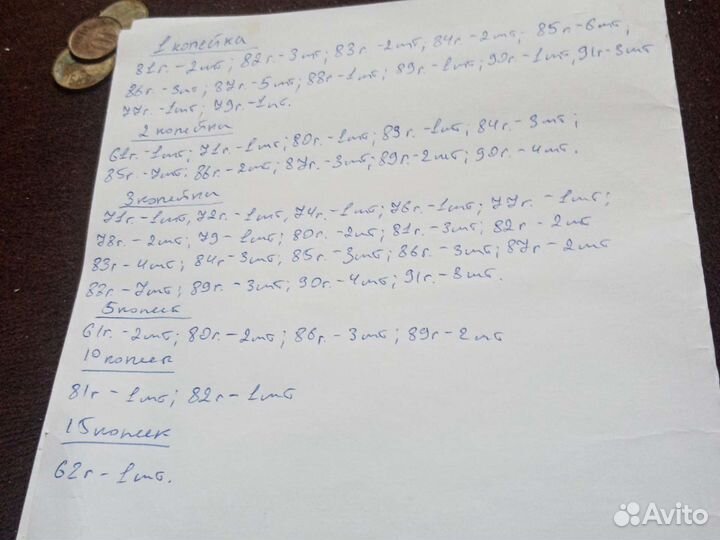 1 копейка
81г. - 2шт; 82г. - 3шт; 83г. - 2шт, 84г. - 2шт; 85г - 6шт;
86г. - 3шт; 87г. - 5шт; 88г - 1шт; 89г. - 1шт; 90г - 1шт, 91г - 3шт
77г. - 1шт; 79г. - 1шт.
2 копейка
61г - 1шт; 71г. - 1шт; 80г. - 1шт; 83г. - 1шт, 84г. - 3шт;
85г - 7шт. 86г. - 2шт; 87г. - 3шт; 89г. - 2шт; 90г. - 4шт.
3 копейка
71г. - 1шт, 72г. - 1шт, 74г. - 1шт; 76г. - 1шт; 77г. - 1шт;
78г. - 2шт; 79 - 1шт; 80г. - 2шт; 81г. - 3шт; 82г - 2шт
83г - 4шт; 84г - 3шт, 85г. - 3шт; 86г. - 3шт; 87г - 2шт
88г - 7шт; 89г. - 3шт; 90г. - 4шт; 91г. - 8шт.
5 копеек
61г. - 2шт; 80г. - 2шт; 86г. - 3шт; 89г - 2шт
10 копеек
81г - 1шт; 82г - 1шт
15 копеек
62г - 1шт.
Avito